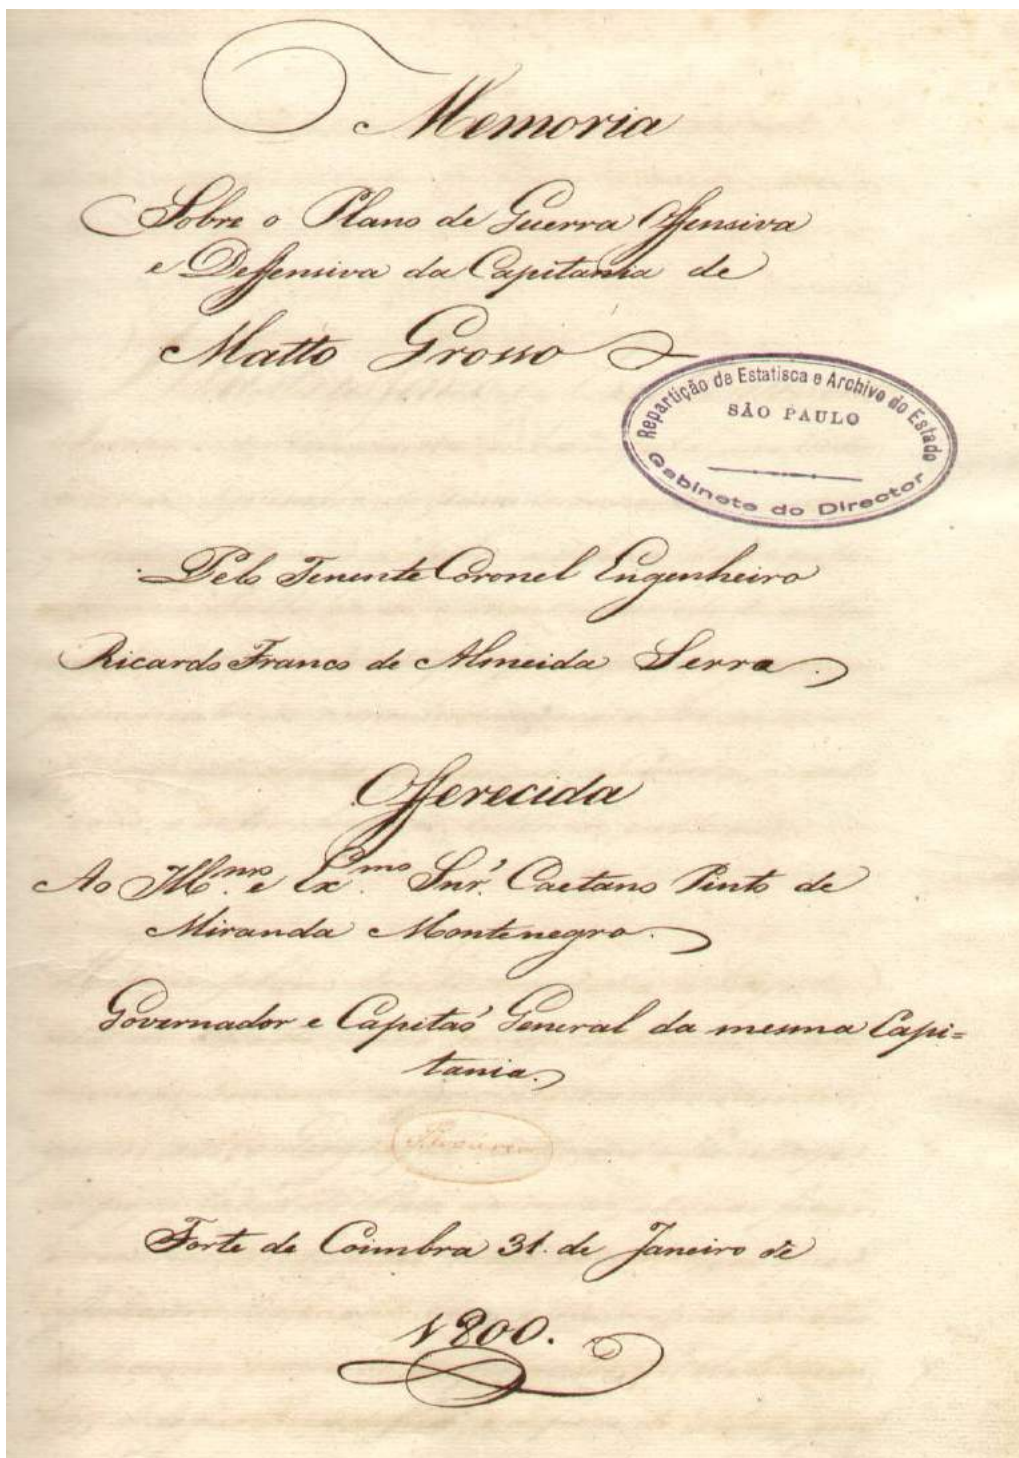 Memoria
Sobre o Plano de Guerra Offensiva
e Deffensiva da Capitania de
Matto Grosso
Repartição de Estatisca e Archivo do Estado
SÃO PAULO
Gabinete do Director
Pelo Tenente Coronel Engenheiro
Ricardo Franco de Almeida Serra.
Offerecida
Ao Ill.mo e Ex.mo Snr. Caetano Pinto de
Miranda Montenegro.
Governador e Capitaõ General da mesma Capi=
tania.
Forte de Coimbra 31. de Janeiro de
1800.